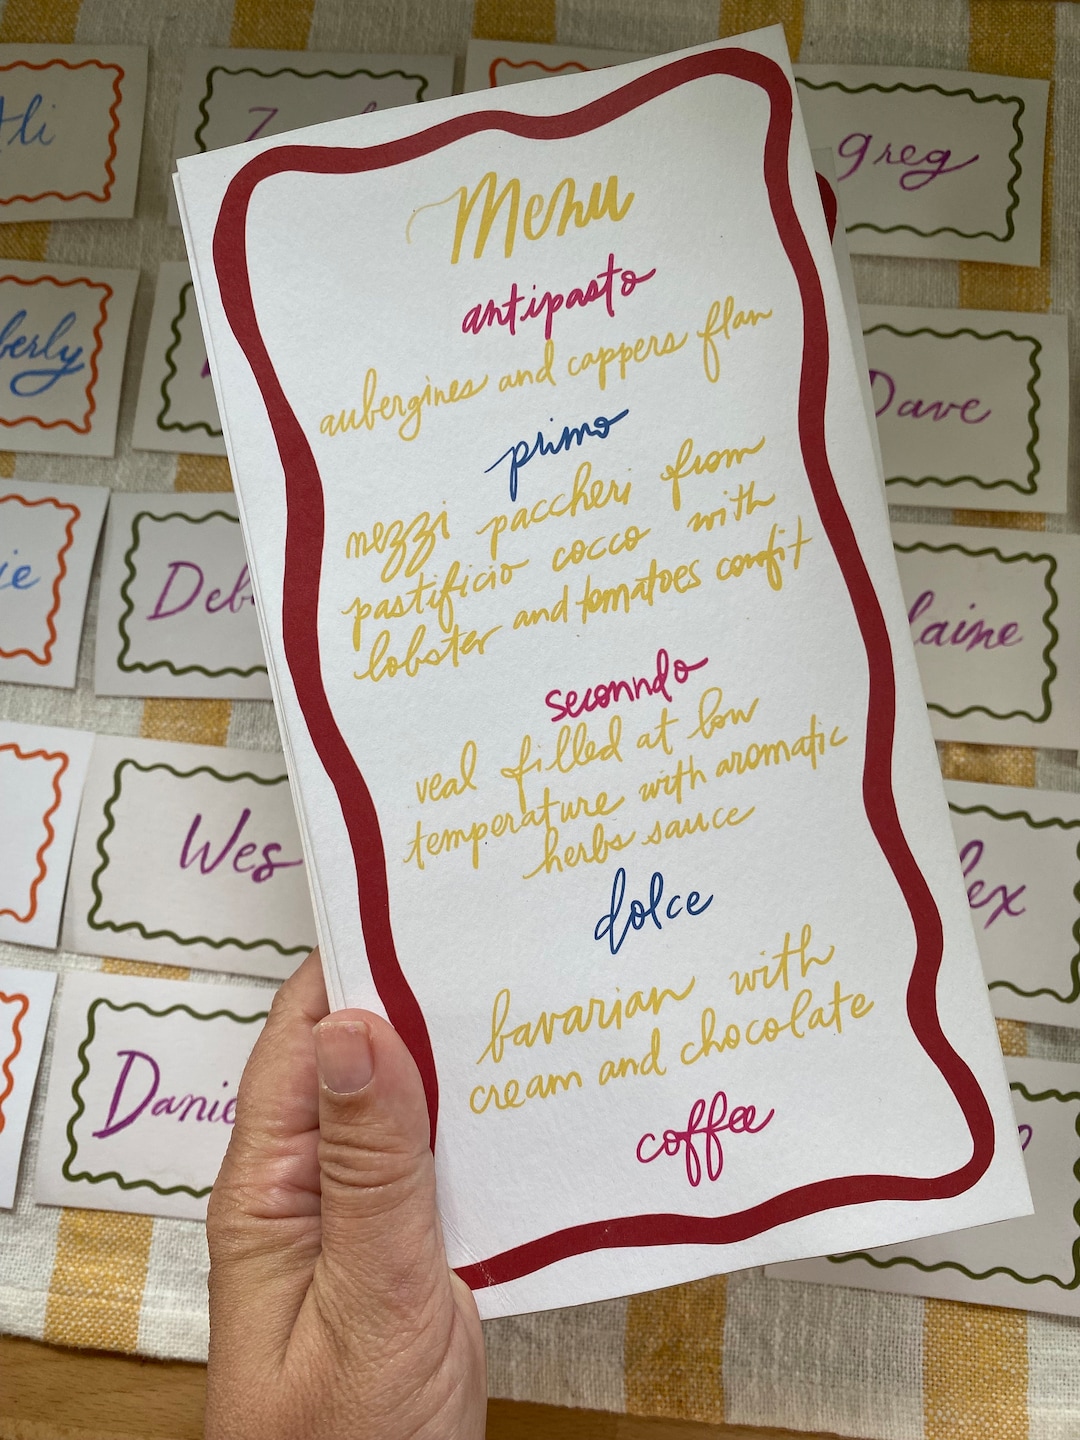 Ali
greg
Menu
antipasto
aubergines and cappers flan
primo
nezzi paccheri from
pastificio cocco with
lobster and tomatoes confit
seconndo
veal filled at low
temperature with aromatic
herbs sauce
dolce
bavarian with
cream and chocolate
coffee
berly
Dave
ie
Deb
laine
Wes
lex
Danie